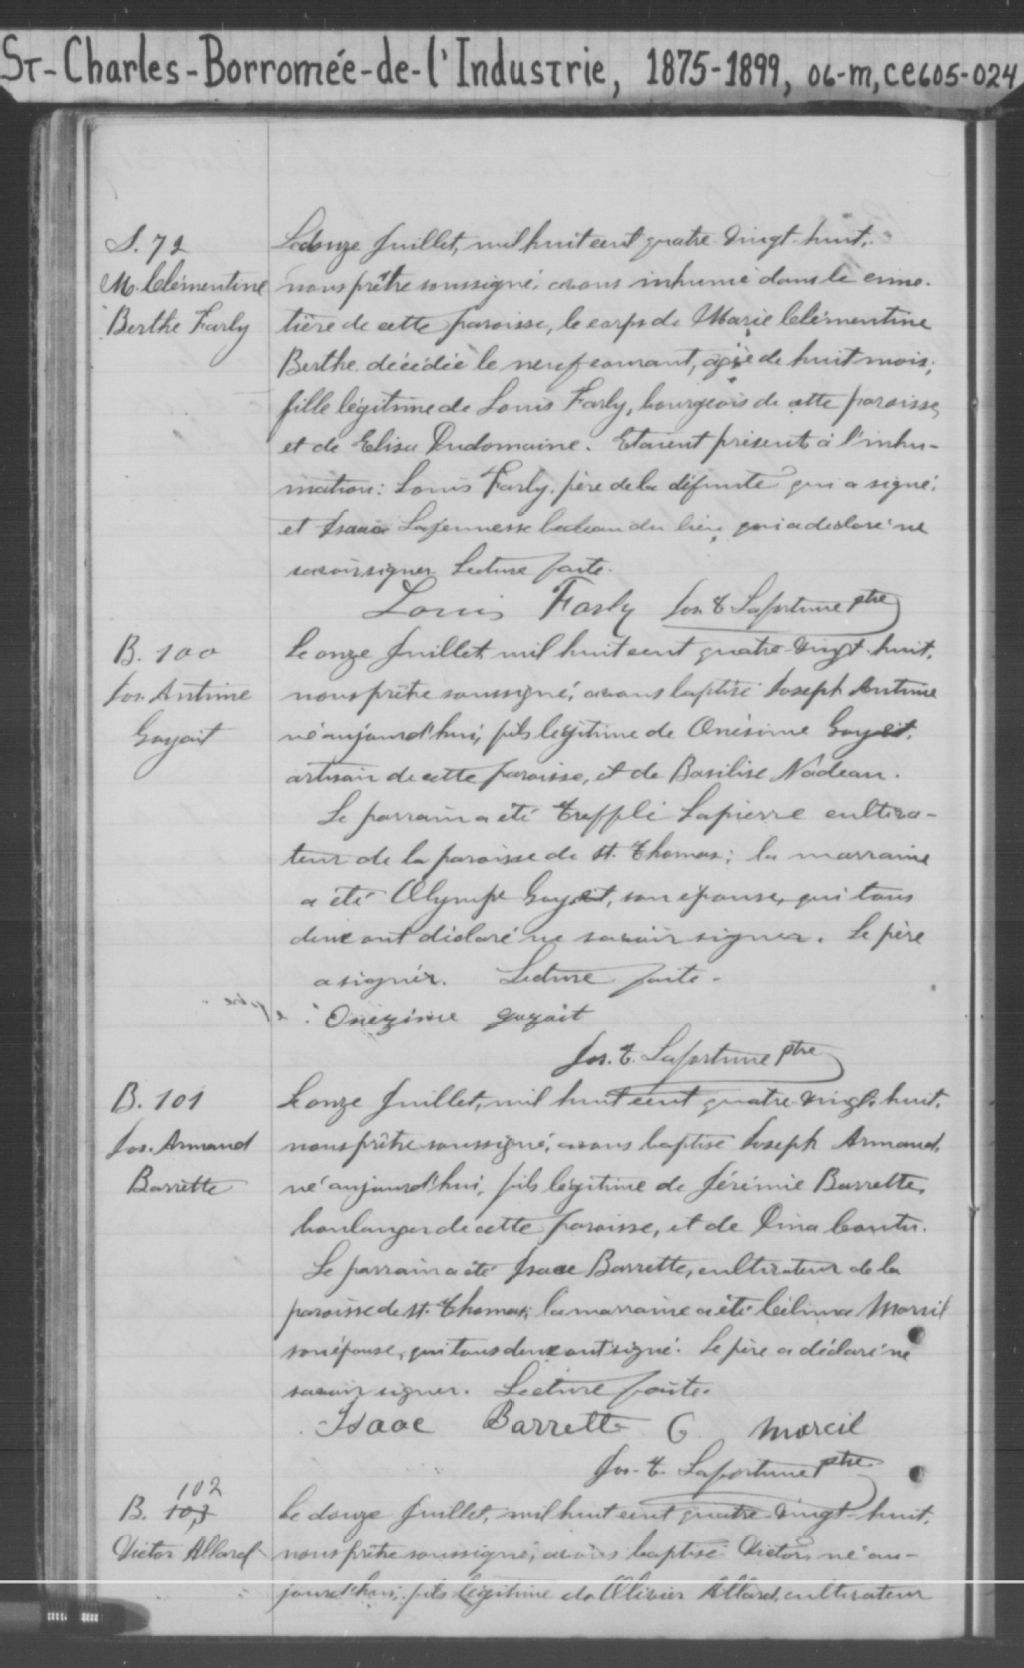 ST-Charles-Borromée-de-l'Industrie, 1875-1899, 06-m, CE605-024
S. 72
M. Clémentine
Berthe Farly
Le onze Juillet, mil huit cent quatre-vingt-huit,
nous prêtre soussigné, avons inhumé dans le cime-
tière de cette paroisse, le corps de Marie Clémentine
Berthe décédée le neuf courant, agée de huit mois,
fille légitime de Louis Farly, bourgeois de cette paroisse,
et de Elisa Dudomaine. Etaient présents à l'inhu-
mation: Louis Farly, père de la défunte qui a signé,
et Isaaie Lajeunesse bedeau du lieu, qui a déclaré ne
savoir signer. Lecture faite.
Louis Farly Jos. E. Lafortune ptre
B. 100
Jos. Antime
Gayait
Le onze Juillet, mil huit cent quatre-vingt-huit,
nous prêtre soussigné, avons baptisé Joseph Antime
né aujourd'hui, fils légitime de Onésime Gayait,
artisan de cette paroisse, et de Basilise Nadeau.
Le parrain a été Treffle Lapierre cultiva-
teur de la paroisse de St. Thomas; la marraine
a été Olympe Gayait, son épouse, qui tous
deux ont déclaré ne savoir signer. Le père
a signé. Lecture faite.
Onezime gayait
Jos. E. Lafortune ptre
B. 101
Jos. Armand
Barrette
Le onze Juillet, mil huit cent quatre-vingt-huit,
nous prêtre soussigné, avons baptisé Joseph Armand,
né aujourd'hui, fils légitime de Jérémie Barrette,
boulanger de cette paroisse, et de Dina Coutu.
Le parrain a été Isaac Barrette, cultivateur de la
paroisse de St. Thomas; la marraine a été Célina Marsil
son épouse, qui tous deux ont signé. Le père a déclaré ne
savoir signer. Lecture faite.
Isaac Barrette C Marcil
Jos. E. Lafortune ptre
102
B. 103
Victor Allard
Le douze Juillet, mil huit cent quatre-vingt-huit,
nous prêtre soussigné, avons baptisé Victor, né au-
jourd'hui, fils légitime de Olivier Allard, cultivateur